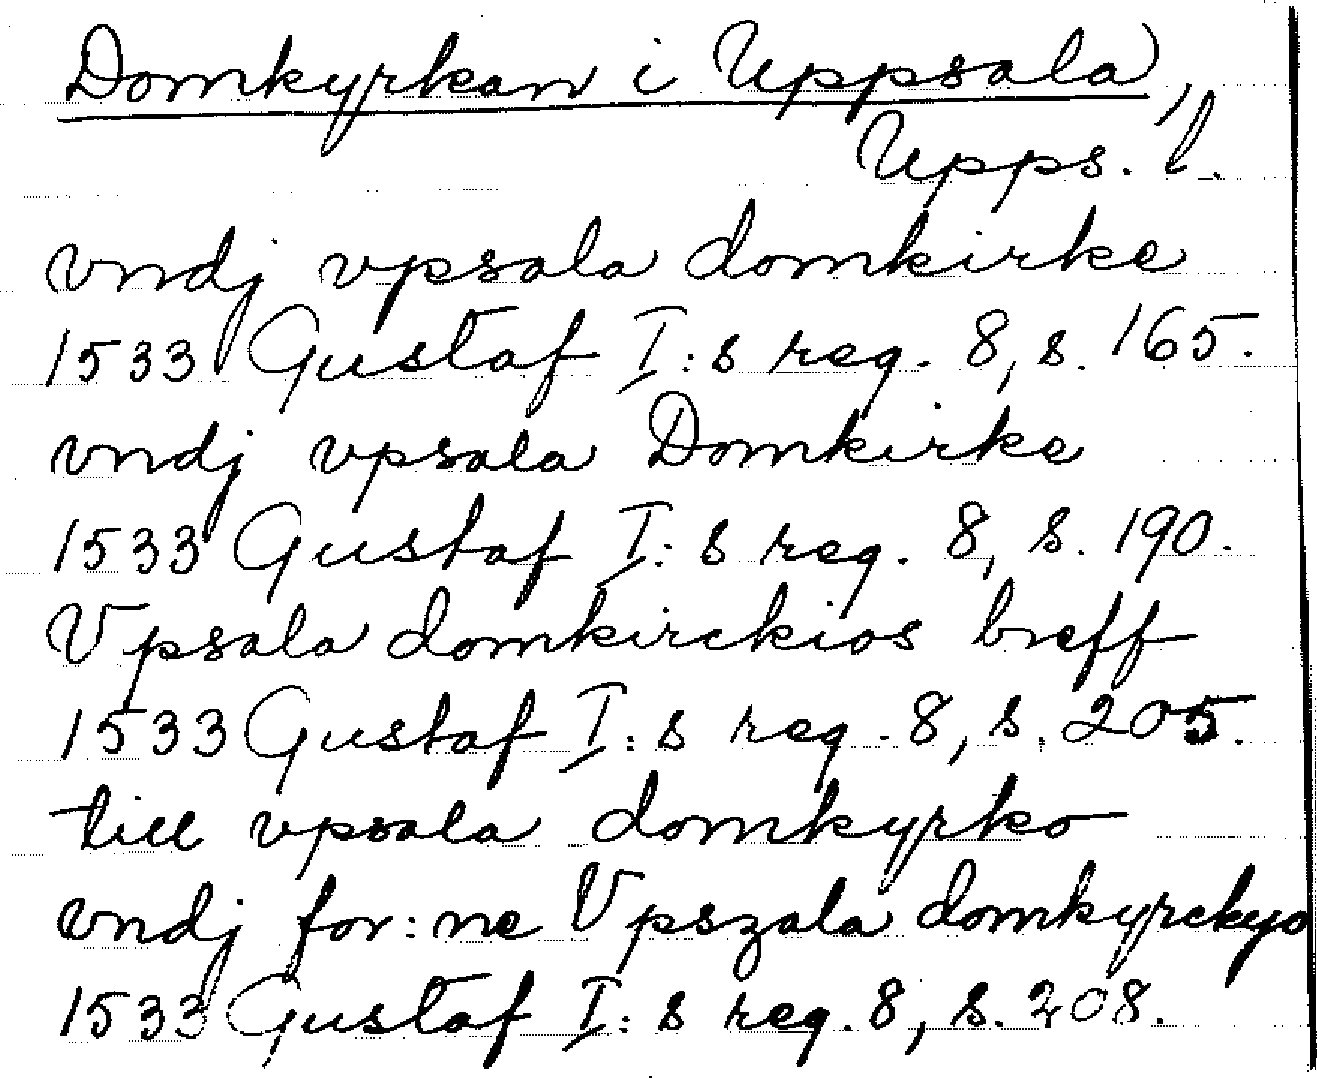 Domkyrkan i Uppsala,
Upps. l.
vndj vpsala domkirke
1533 Gustaf I:s reg. 8, s. 165.
vndj vpsala Domkirke
1533 Gustaf I:s reg. 8, s. 190.
Vpsala domkirckios breff
1533 Gustaf I:s reg. 8, s. 205.
till vpsala domkyrko
vndj for:ne Vpszala domkyrckyo
1533 Gustaf I:s reg. 8, s. 208.